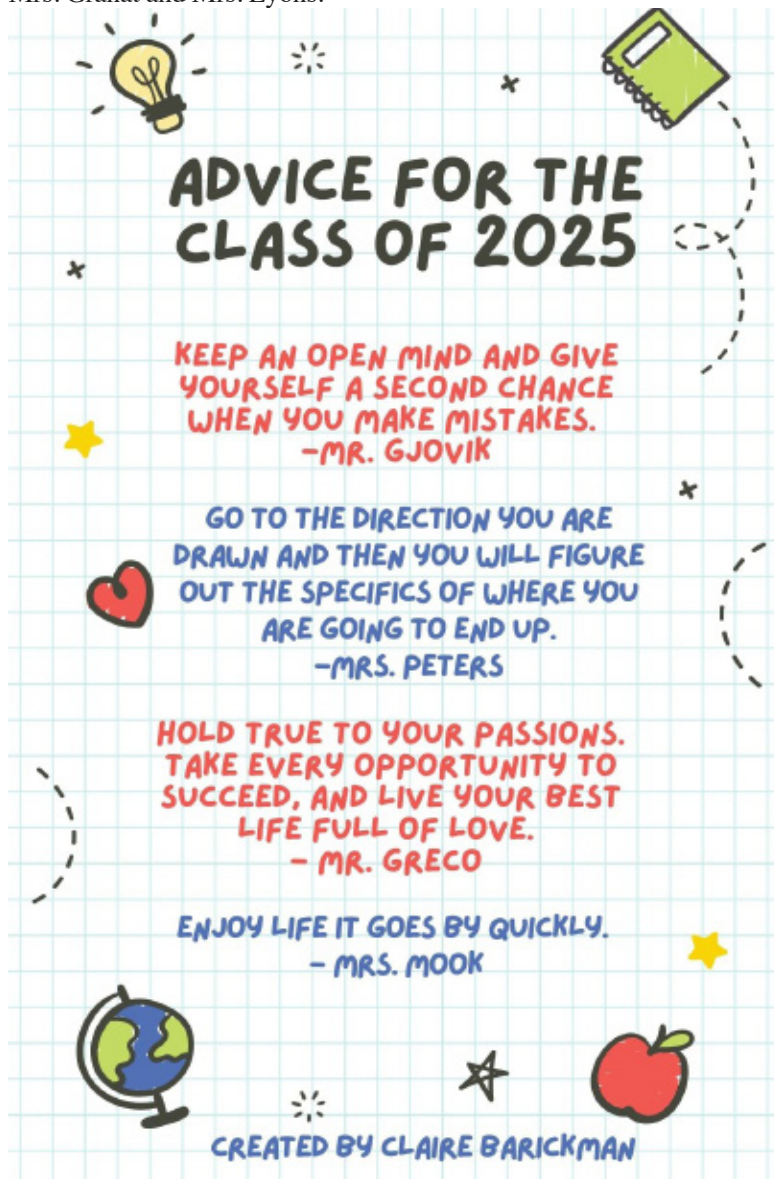 Mrs. Granat and Mrs. Lyons.
ADVICE FOR THE
CLASS OF 2025
KEEP AN OPEN MIND AND GIVE
YOURSELF A SECOND CHANCE
WHEN YOU MAKE MISTAKES.
-MR. GJOVIK
GO TO THE DIRECTION YOU ARE
DRAWN AND THEN YOU WILL FIGURE
OUT THE SPECIFICS OF WHERE YOU
ARE GOING TO END UP.
-MRS. PETERS
HOLD TRUE TO YOUR PASSIONS.
TAKE EVERY OPPORTUNITY TO
SUCCEED, AND LIVE YOUR BEST
LIFE FULL OF LOVE.
- MR. GRECO
ENJOY LIFE IT GOES BY QUICKLY.
- MRS. MOOK
CREATED BY CLAIRE BARICKMAN